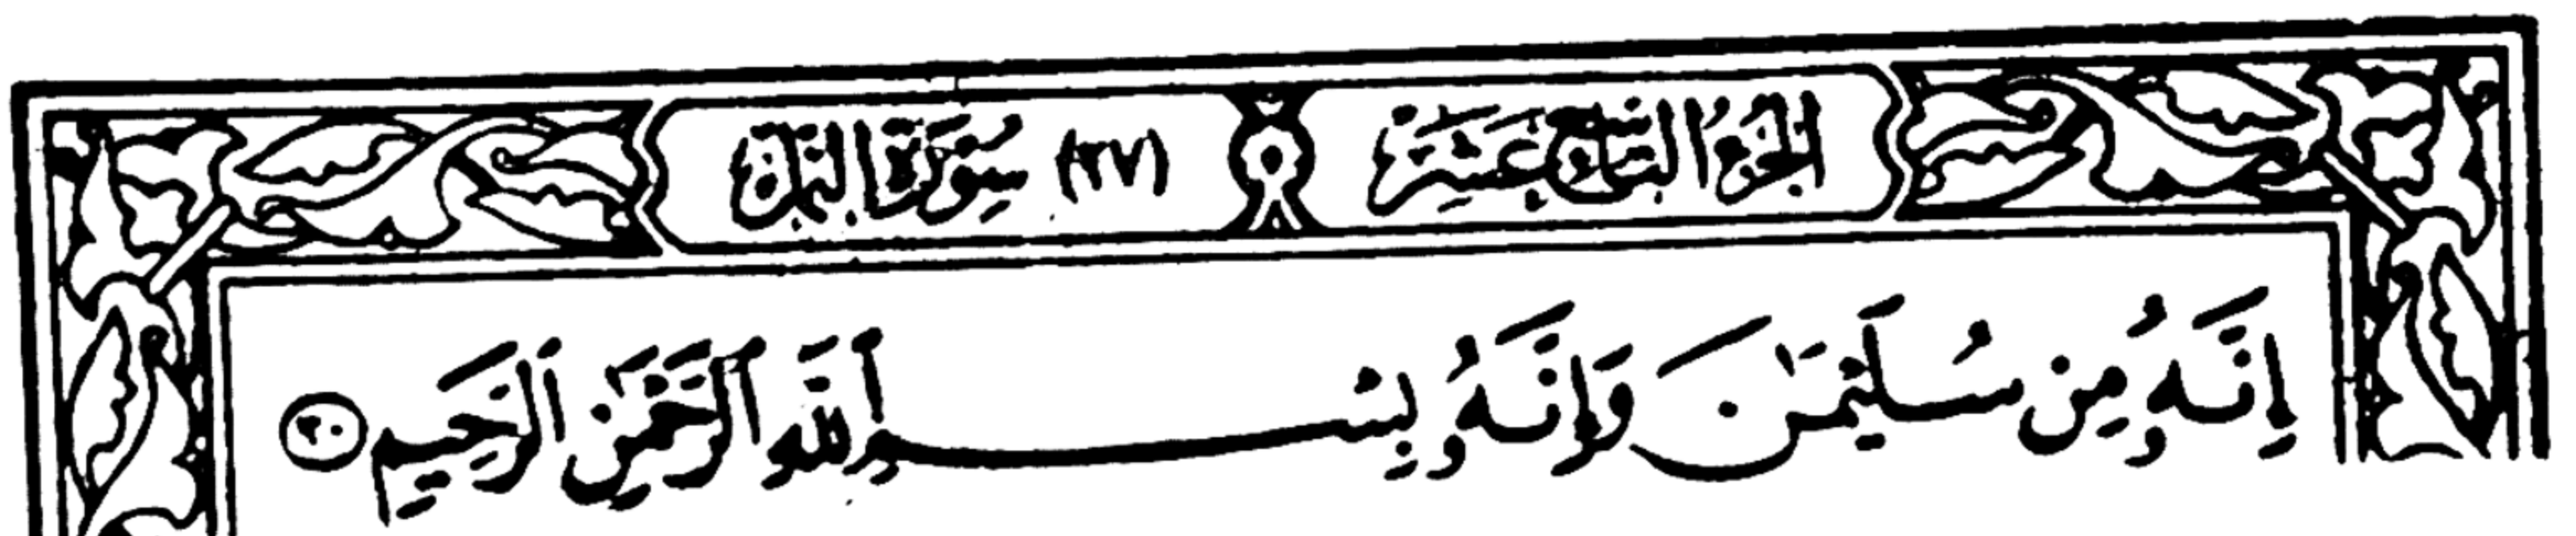 الجُزْءُ التَّاسِعُ عَشَرَ (٢٧) سُورَةُ النَّمْلِ
إِنَّهُۥ مِن سُلَيْمَٰنَ وَإِنَّهُۥ بِسْمِ ٱللَّهِ ٱلرَّحْمَٰنِ ٱلرَّحِيمِ ٣٠